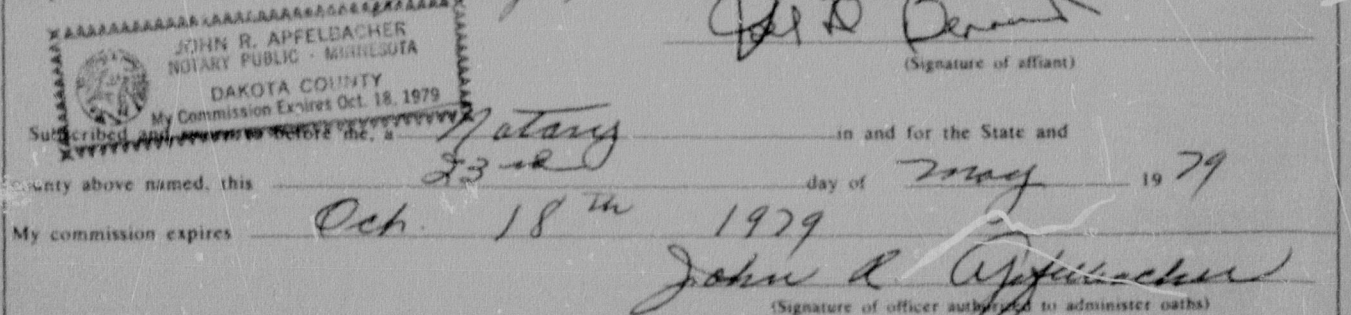 JOHN R. APFELBACHER
NOTARY PUBLIC - MINNESOTA
DAKOTA COUNTY
My Commission Expires Oct. 18, 1979
(Signature of affiant)
Subscribed and sworn to before me, a Notary in and for the State and
County above named, this 23rd day of May 1979
My commission expires Oct. 18th 1979
John R. Apfelbacher
(Signature of officer authorized to administer oaths)